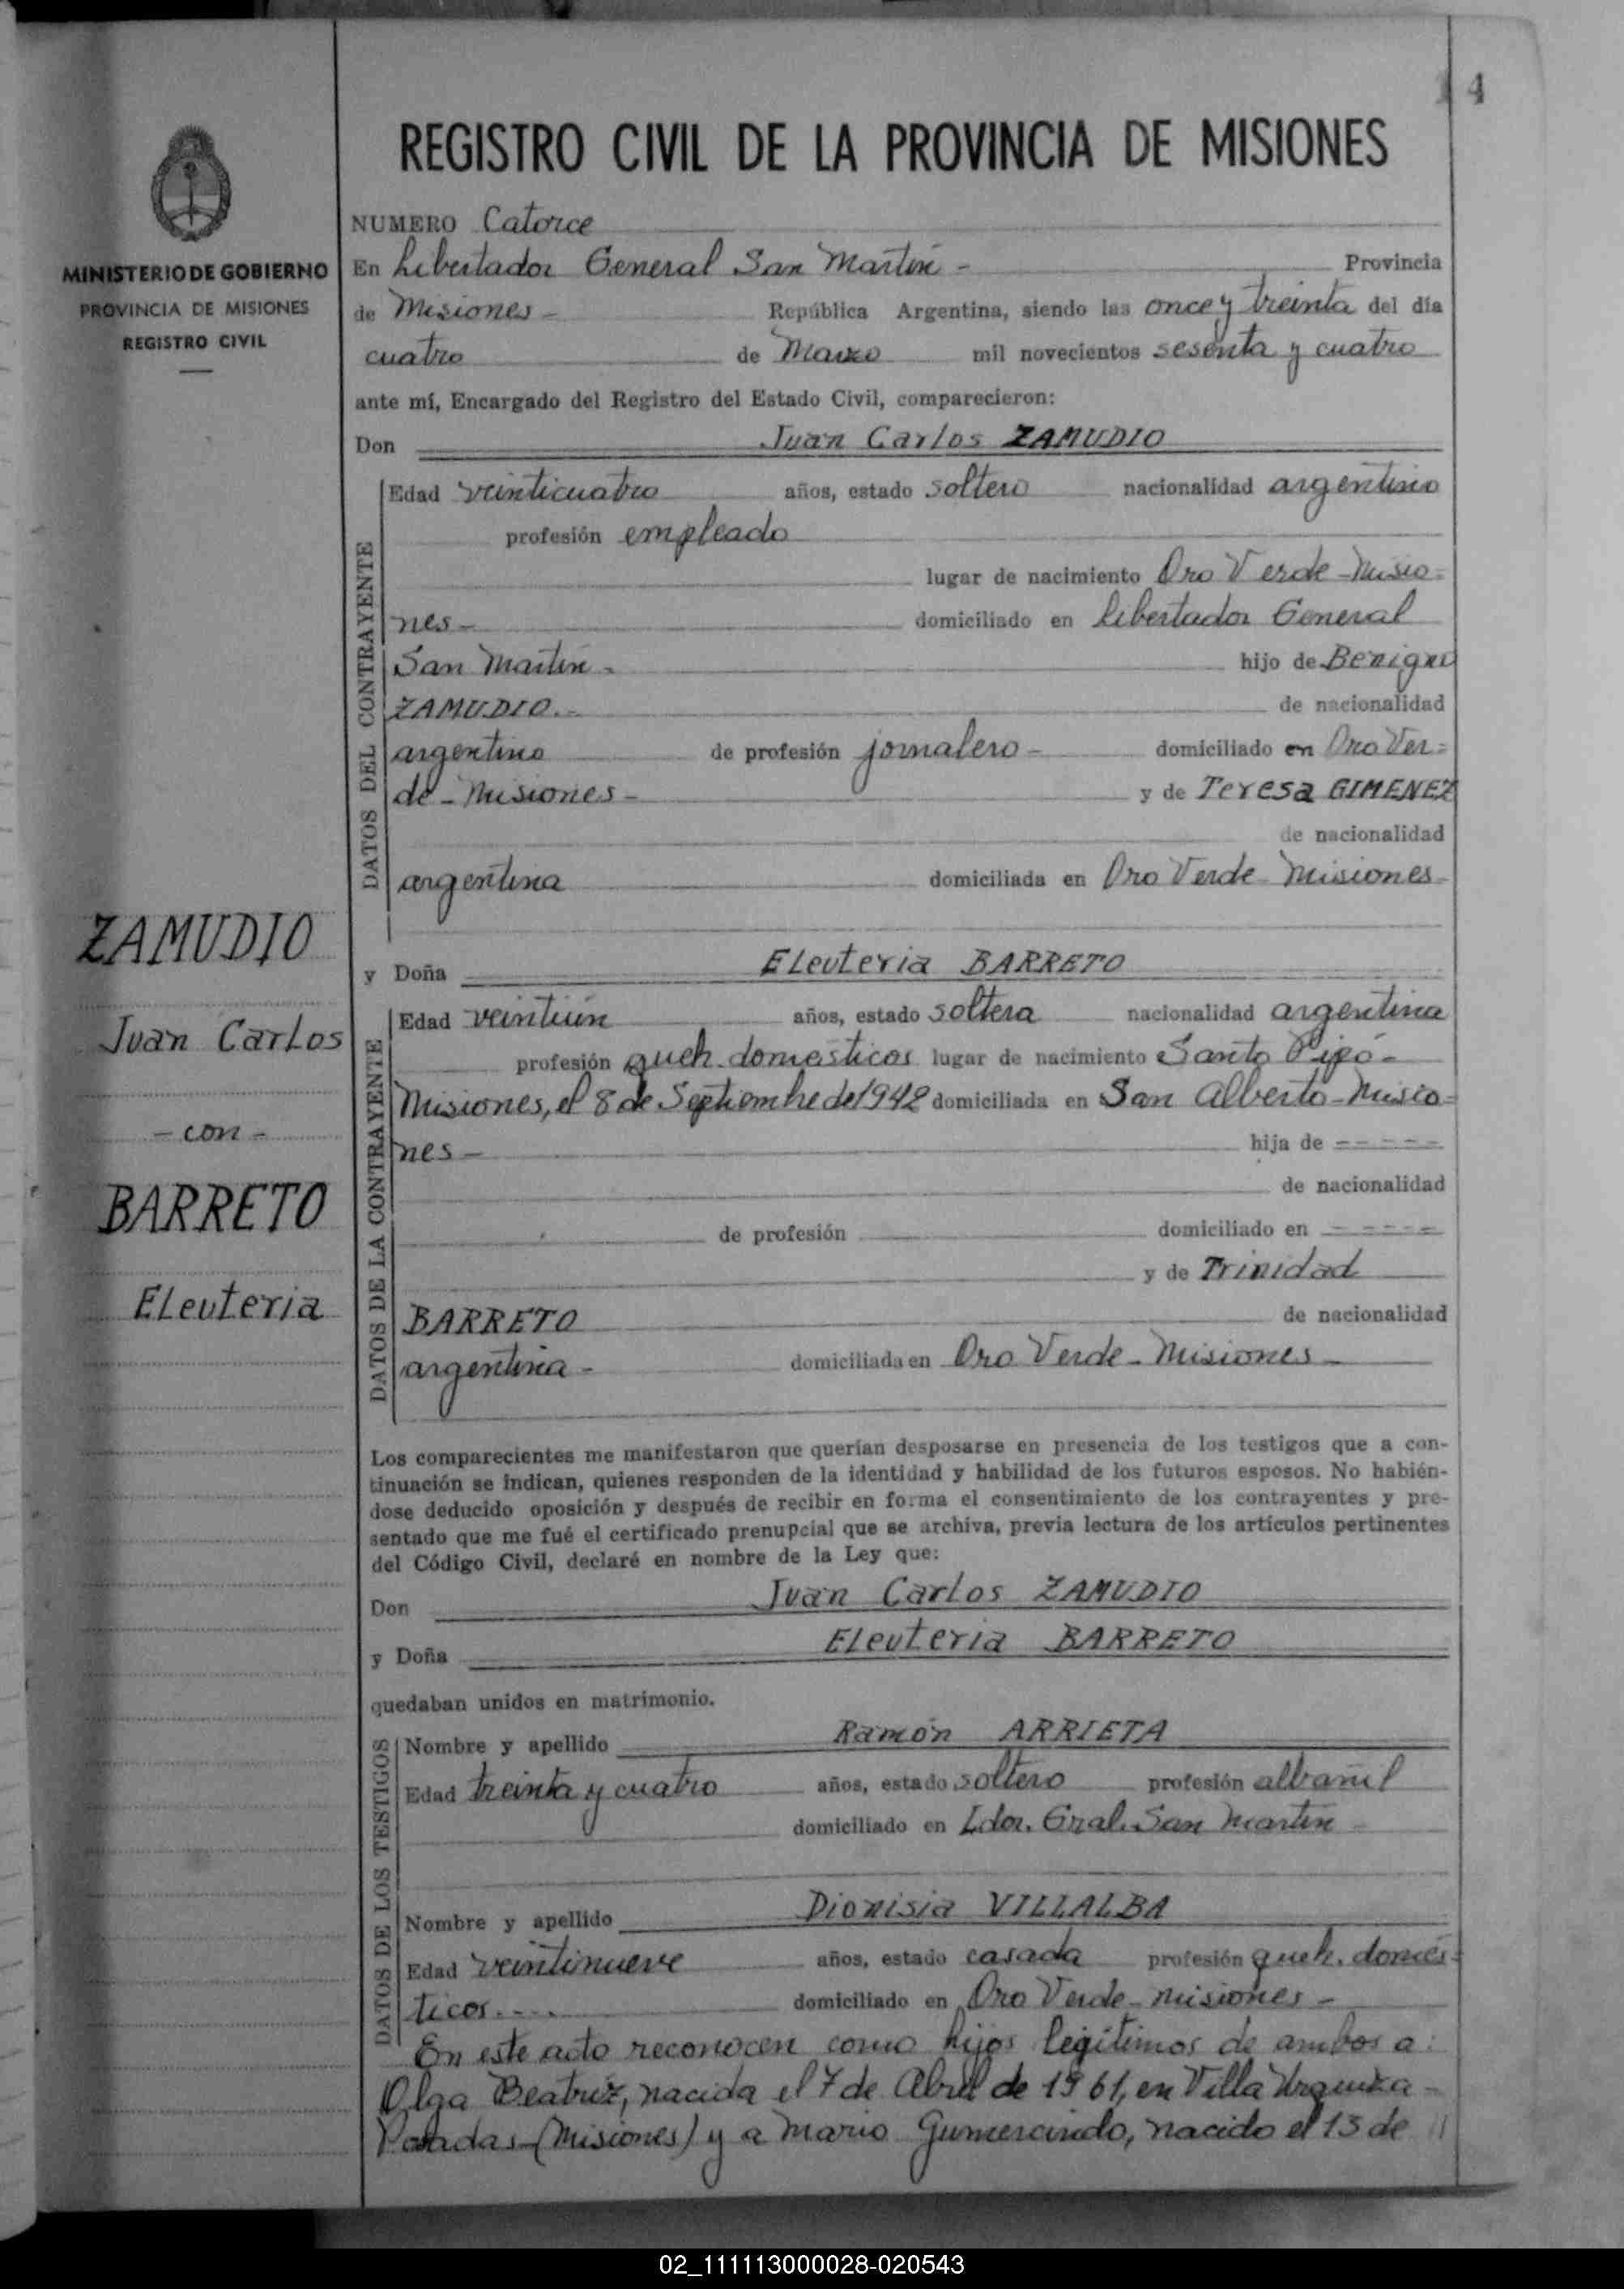 4
REGISTRO CIVIL DE LA PROVINCIA DE MISIONES
MINISTERIO DE GOBIERNO
PROVINCIA DE MISIONES
REGISTRO CIVIL
NUMERO Catorce
En Libertador General San Martín - Provincia
de Misiones - República Argentina, siendo las once y treinta del día
cuatro de Marzo mil novecientos sesenta y cuatro
ante mí, Encargado del Registro del Estado Civil, comparecieron:
Don Juan Carlos ZAMUDIO
DATOS DEL CONTRAYENTE
Edad veinticuatro años, estado soltero nacionalidad argentino
profesión empleado
lugar de nacimiento Oro Verde - Misio=
nes - domiciliado en Libertador General
San Martín - hijo de Benigno
ZAMUDIO.- de nacionalidad
argentino de profesión jornalero - domiciliado en Oro Ver=
de - Misiones - y de Teresa GIMENEZ
de nacionalidad
argentina domiciliada en Oro Verde Misiones -
ZAMUDIO
Juan Carlos
- con -
BARRETO
Eleuteria
y Doña Eleuteria BARRETO
DATOS DE LA CONTRAYENTE
Edad veintiún años, estado soltera nacionalidad argentina
profesión queh. domésticos lugar de nacimiento Santo Pipó -
Misiones, el 8 de Septiembre de 1942 domiciliada en San Alberto - Misio=
nes - hija de - - - - - -
de nacionalidad
de profesión domiciliado en - - - - - -
y de Trinidad
BARRETO de nacionalidad
argentina - domiciliada en Oro Verde - Misiones -
Los comparecientes me manifestaron que querían desposarse en presencia de los testigos que a con-
tinuación se indican, quienes responden de la identidad y habilidad de los futuros esposos. No habién-
dose deducido oposición y después de recibir en forma el consentimiento de los contrayentes y pre-
sentado que me fué el certificado prenupcial que se archiva, previa lectura de los artículos pertinentes
del Código Civil, declaré en nombre de la Ley que:
Don Juan Carlos ZAMUDIO
y Doña Eleuteria BARRETO
quedaban unidos en matrimonio.
DATOS DE LOS TESTIGOS
Nombre y apellido Ramón ARRIETA
Edad treinta y cuatro años, estado soltero profesión albañil
domiciliado en Ldor. Gral. San Martín -
Nombre y apellido Dionisia VILLALBA
Edad veintinueve años, estado casada profesión queh. domés=
ticos.... domiciliado en Oro Verde - Misiones -
En este acto reconocen como hijos legítimos de ambos a:
Olga Beatriz, nacida el 7 de Abril de 1961, en Villa Urquiza -
Posadas - (Misiones) y a Mario Gumercindo, nacido el 13 de //
02_111113000028-020543